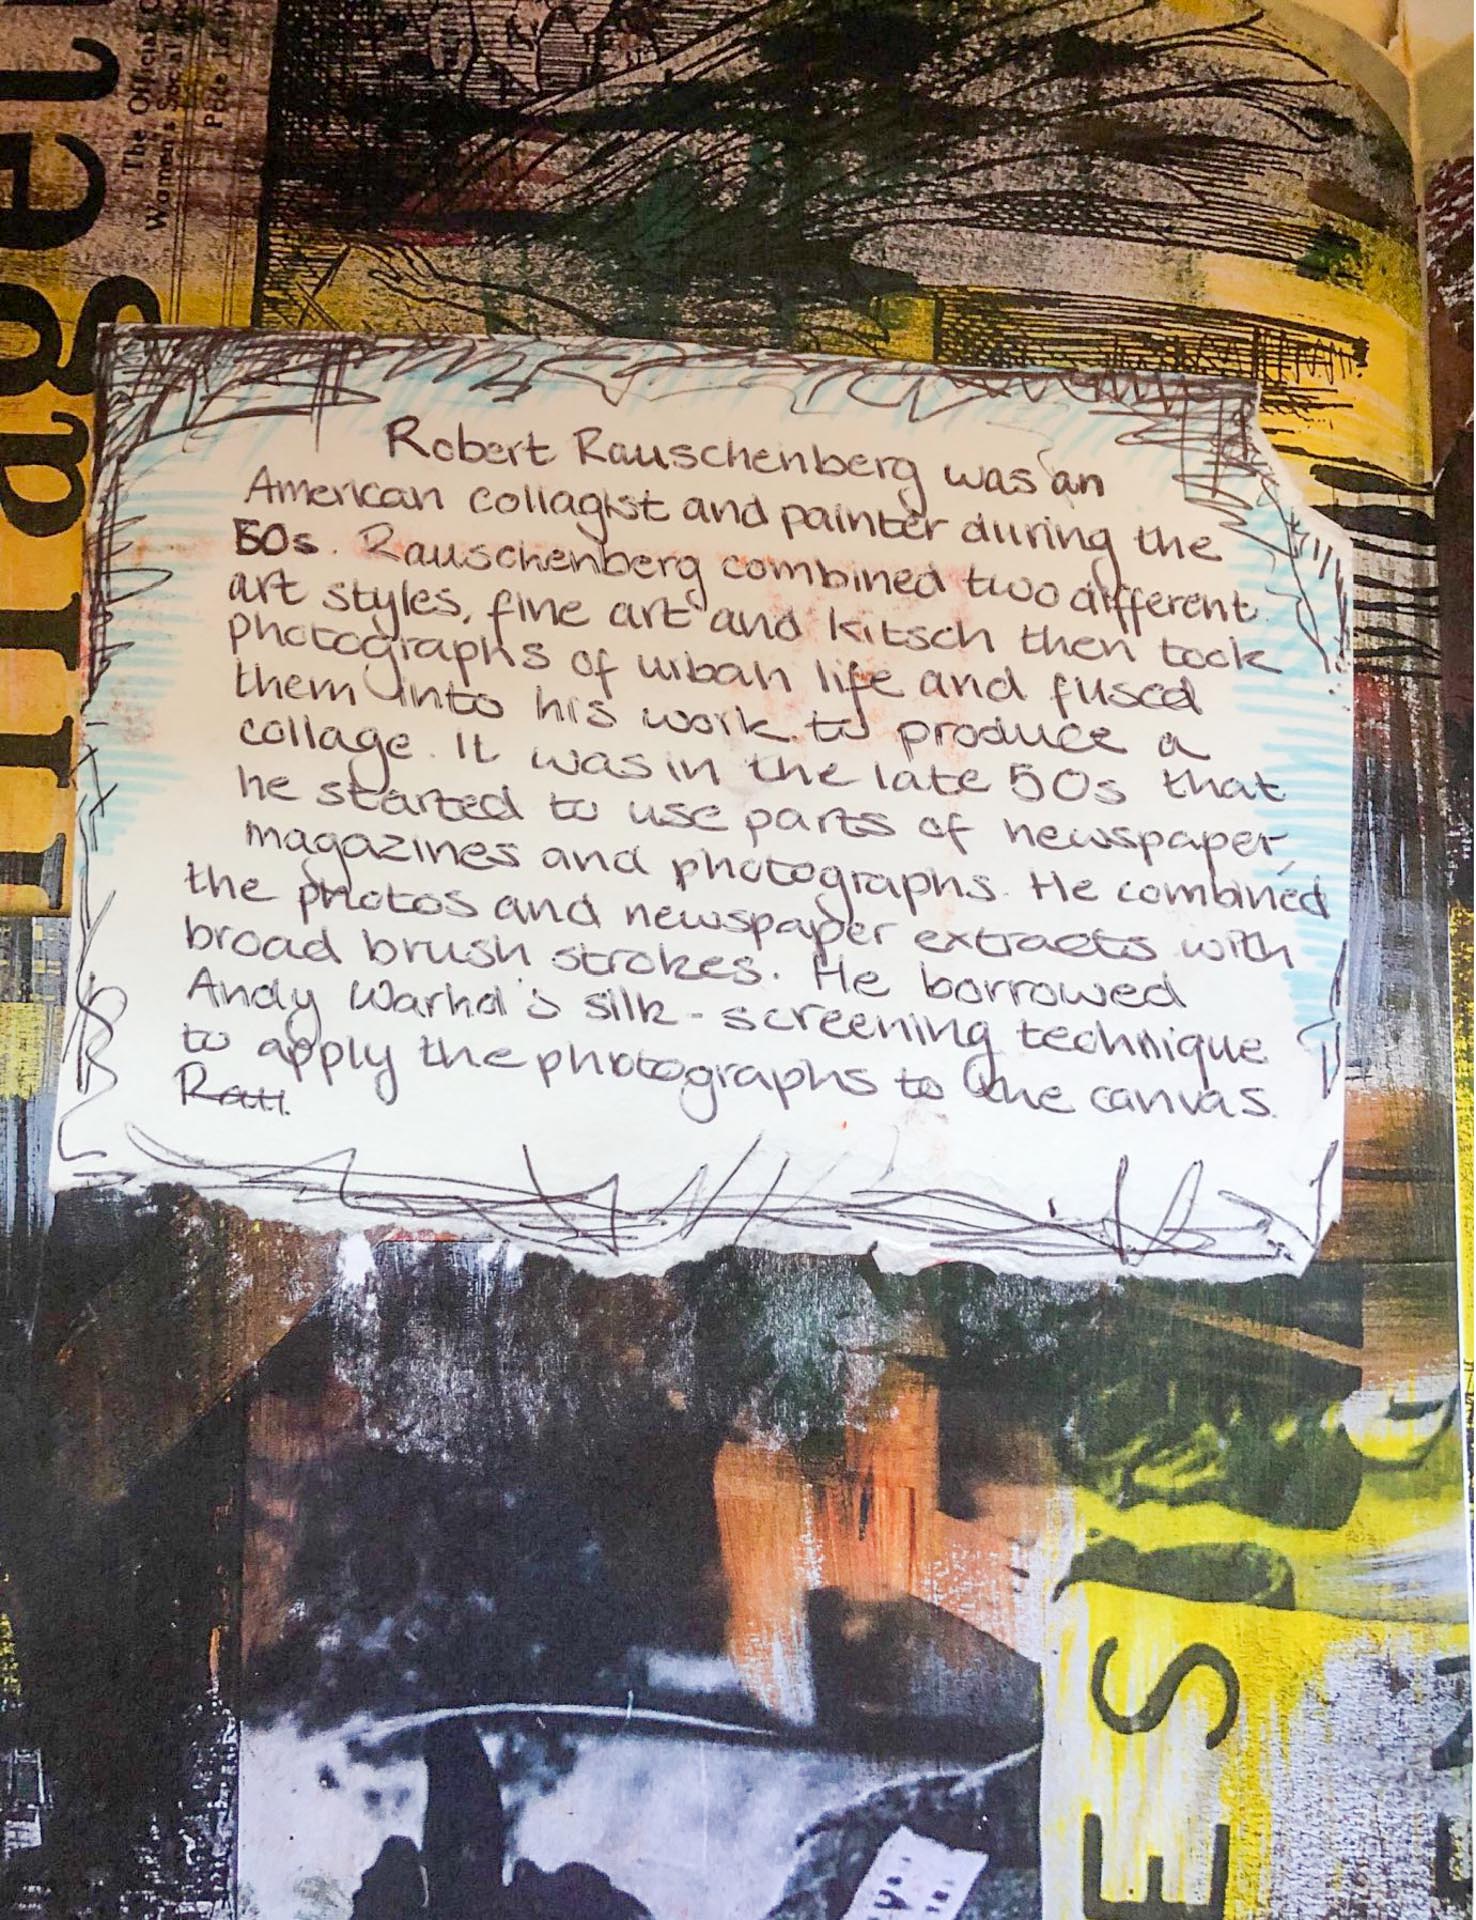 The Official O
Women's Social
Robert Rauschenberg was an
American collagist and painter during the
50s. Rauschenberg combined two different
art styles, fine art and kitsch then took
photographs of urban life and fused
them into his work to produce a
collage. It was in the late 50s that
he started to use parts of newspaper,
magazines and photographs. He combined
the photos and newspaper extracts with
broad brush strokes. He borrowed
Andy Warhol's silk-screening technique
to apply the photographs to the canvas.
Rau
ES